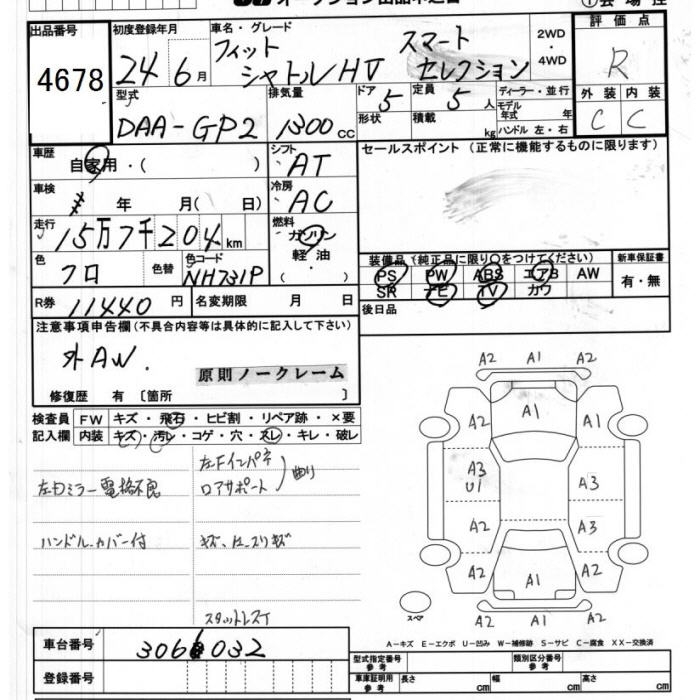 オークション出品申込書
出品番号 4678
初度登録年月 24年6月
車名・グレード フィット シャトルHV スマートセレクション
2WD・4WD
評価点 R
外装 C 内装 C
型式 DAA-GP2
排気量 1300cc
ドア 5 形状
定員 5人 積載 kg
ディーラー・並行
モデル年式 年
ハンドル 左・右
車歴 自家用・( )
シフト AT
セールスポイント(正常に機能するものに限ります)
車検 年 月( 日)
冷房 AC
走行 15万7千204km
燃料 ガソリン 軽油 ( ・ )
色 クロ 色替 色コード NH731P
装備品(純正品に限り○をつけてください) 新車保証書
PS PW ABS エアB AW 有・無
SR ナビ TV カワ
R券 11440円 名変期限 月 日
後日品
注意事項申告欄(不具合内容等は具体的に記入して下さい)
外AW.
原則ノークレーム
修復歴 有〔箇所 〕
検査員 FW キズ・飛石・ヒビ割・リペア跡・×要
記入欄 内装 キズ・汚レ・コゲ・穴・スレ・キレ・破レ
左Fインパネ
ロアサポート 曲り
左右ミラー電格不良
ハンドルカバー付
スタットレス
A2 A1 A2
A2 A1 A2
A3 U1 A3
A2 A3
A2 A1 A2
A2 A1 A2
スペア
A-キズ E-エクボ U-凹み W-補修跡 S-サビ C-腐食 XX-交換済
車台番号 3066032
登録番号
型式指定番号 参考 類別区分番号 参考
車庫証明用 参考 長さ cm 幅 cm 高さ cm